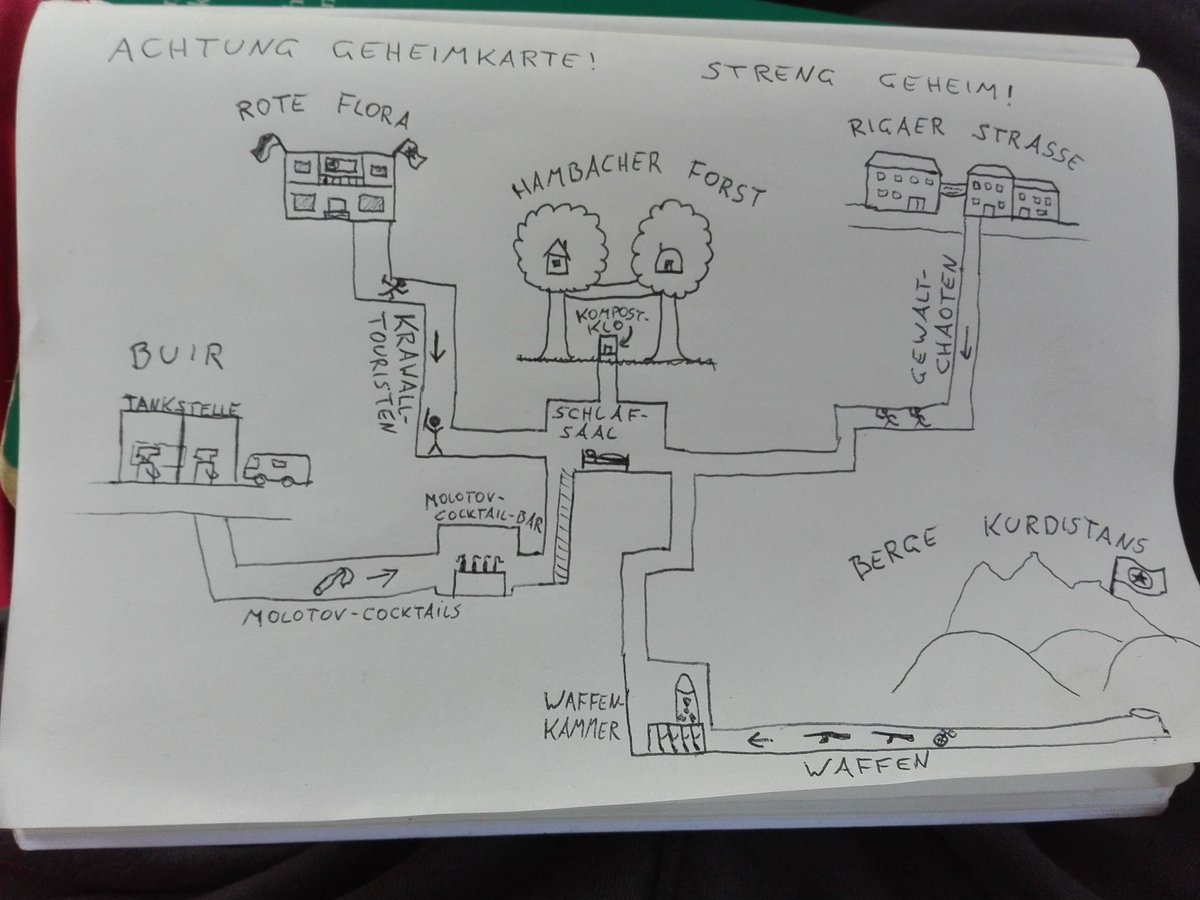 ACHTUNG GEHEIMKARTE!
STRENG GEHEIM!
ROTE FLORA
HAMBACHER FORST
RIGAER STRASSE
KOMPOST-
KLO
KRAVALL-
TOURISTEN
GEWALT-
CHAOTEN
BUIR
TANKSTELLE
SCHLAF-
SAAL
MOLOTOV-
COCKTAIL-BAR
MOLOTOV-COCKTAILS
BERGE KURDISTANS
WAFFEN-
KAMMER
WAFFEN